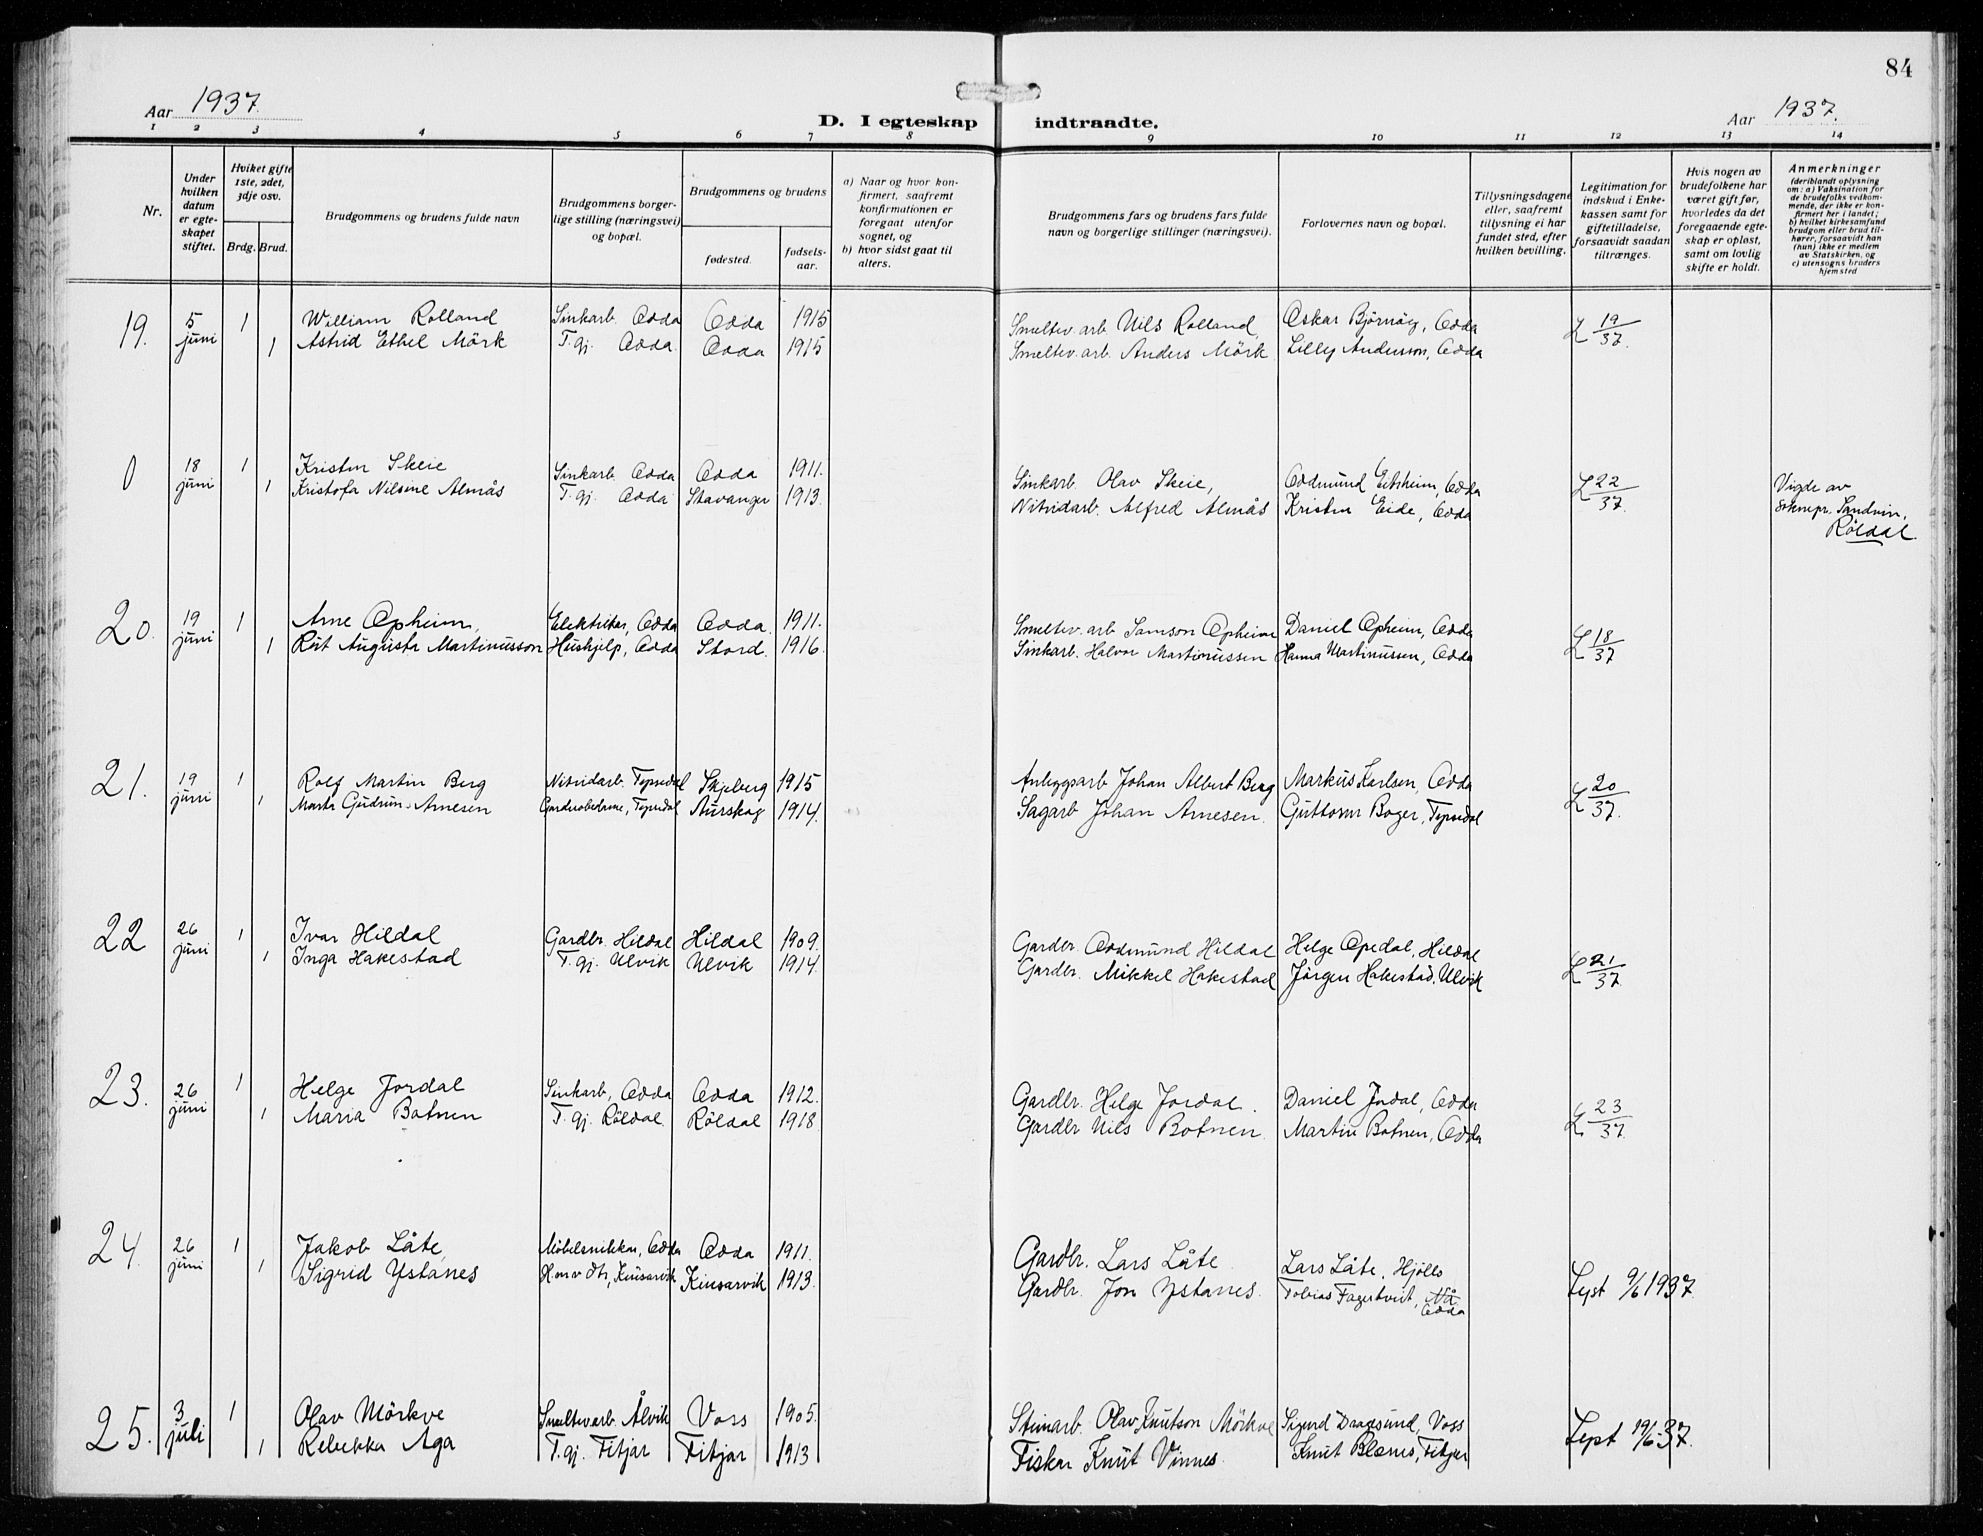 84
Aar 1937.
D. I egteskap indtraadte.
Aar 1937.
1 2 3 4 5 6 7 8 9 10 11 12 13 14
Nr.
Under hvilken datum er egteskapet stiftet.
Hviket gifte 1ste, 2det, 3dje osv.
Brdg. Brud.
Brudgommens og brudens fulde navn
Brudgommens borgerlige stilling (næringsvei) og bopæl.
Brudgommens og brudens
fødested.
fødselsaar.
a) Naar og hvor konfirmert, saafremt konfirmationen er foregaat utenfor sognet, og
b) hvor sidst gaat til alters.
Brudgommens fars og brudens fars fulde navn og borgerlige stillinger (næringsvei).
Forlovernes navn og bopæl.
Tillysningsdagene eller, saafremt tillysning ei har fundet sted, efter hvilken bevilling.
Legitimation for indskud i Enkekassen samt for giftetilladelse, forsaavidt saadan tiltrænges.
Hvis nogen av brudefolkene har været gift før, hvorledes da det foregaaende egteskap er opløst, samt om lovlig skifte er holdt.
Anmerkninger
(deriblandt oplysning om: a) Vaksination for de brudefolks vedkommende, der ikke er konfirmert her i landet; b) hvilket kirkesamfund brudgom eller brud tilhører, forsaavidt han (hun) ikke er medlem av Statskirken, og c) utensogns bruders hjemsted
19. 5 juni 1 William Rolland Sinkarb. Odda Odda 1915 Smeltev. arb. Nils Rolland, Oskar Björnöy, Odda L 19/37.
1 Astrid Ethel Mörk T. gj. Odda. Odda 1915 Smeltev. arb. Anders Mörk Lilly Andersson, Odda
0 18 juni 1 Kristen Skeie Sinkarb. Odda Odda 1911. Sinkarb. Olav Skeie, Oddmund Eitrheim, Odda L 22/37. Vigde av
1 Kristofa Nilsine Almås T. gj. Odda Stavanger 1913. Nitridarb. Alfred Almås Kristen Eide, Odda soknepr. Sandvin,
Röldal
20. 19 juni 1 Arne Opheim, Elektriker, Odda Odda. 1911. Smeltev. arb. Samson Opheim Daniel Opheim, Odda L 18/37
1 Rut Augusta Martinusson Hushjelp, Odda Stord. 1916. Sinkarb. Halvor Martinussen Hanna Martinussen, Odda
21. 19 juni 1 Rolf Martin Berg Nitridarb. Tyssedal Skjeberg 1915 Anleggsarb. Johan Albert Berg Markus Karlsen, Odda L 20/37.
1 Marta Gudrun Arnesen Garderobedame, Tyssedal Aurskog 1914. Sagarb. Johan Arnesen. Guttorm Boger, Tyssedal
22 26 juni 1 Ivar Hildal Gardbr. Hildal Hildal 1909. Gardbr. Oddmund Hildal Helge Opedal, Hildal L 21/37
1 Inga Hakestad T. gj. Ulvik Ulvik 1914. Gardbr. Mikkel Hakestad Jörgen Hakestad, Ulvik
23. 26 juni 1 Helge Jordal Sinkarb, Odda Odda 1912. Gardbr. Helge Jordal. Daniel Jordal, Odda L 23/37.
1 Maria Botnen T. gj. Röldal. Röldal 1918. Gardbr Nils Botnen. Martin Botnen, Odda
24. 26 juni 1 Jakob Låte, Möbelsnikkar, Odda Odda 1911. Gardbr. Lars Låte Lars Låte, Hjöllo Lyst 9/6 1937.
1 Sigrid Ystanes Kinsarvik Kinsarvik 1913. Gardbr. Jon Ystanes. Tobias Fagertveit, Nå
Odda
25. 3 juli 1 Olav Mörkve Smeltev arb. Ålvik Voss 1905. Steinarb. Olav Knutson Mörkve Sigurd Dragesund, Voss Lyst 19/6-37.
1 Rebekka Aga T. gj. Fitjar Fitjar 1913 Fiskar Knut Vinnes. Knut Blænes, Fitjar